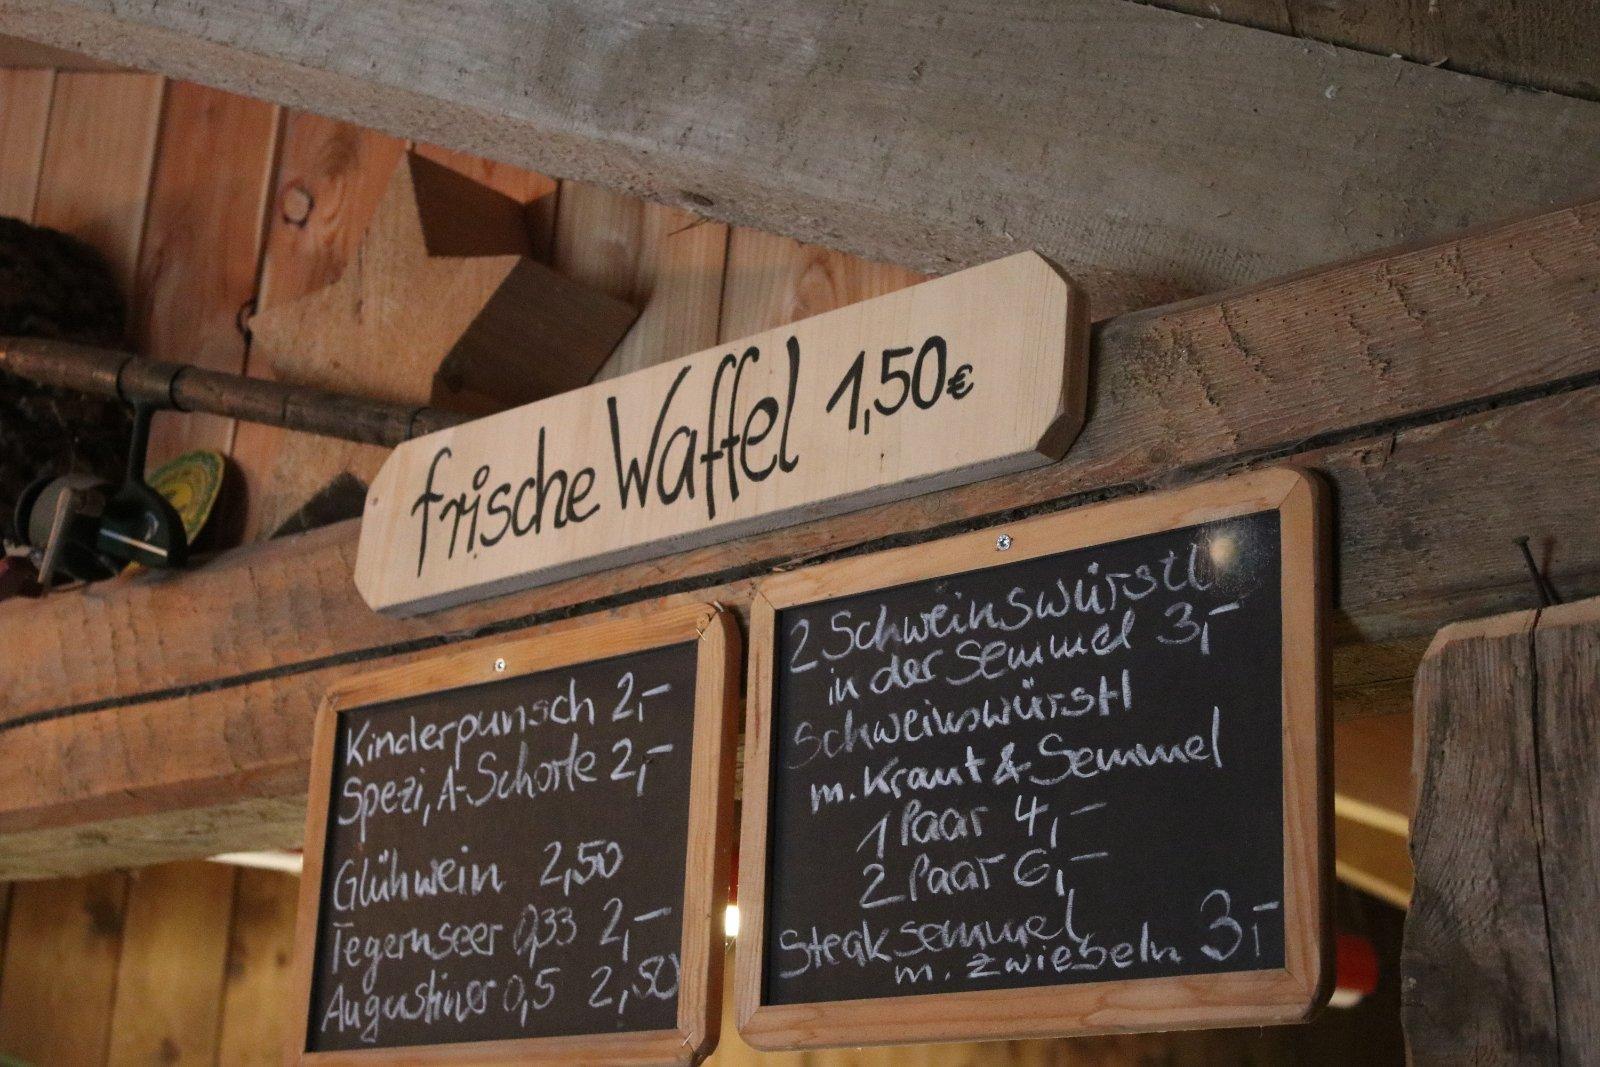 frische Waffel 1,50€
Kinderpunsch 2,-
Spezi, A-Schorle 2,-
Glühwein 2,50
Tegernseer 0,33 2,-
Augustiner 0,5 2,50
2 Schweinswürstl
in der Semmel 3,-
Schweinswürstl
m. Kraut & Semmel
1 Paar 4,-
2 Paar 6,-
Steaksemmel
m. Zwiebeln 3,-